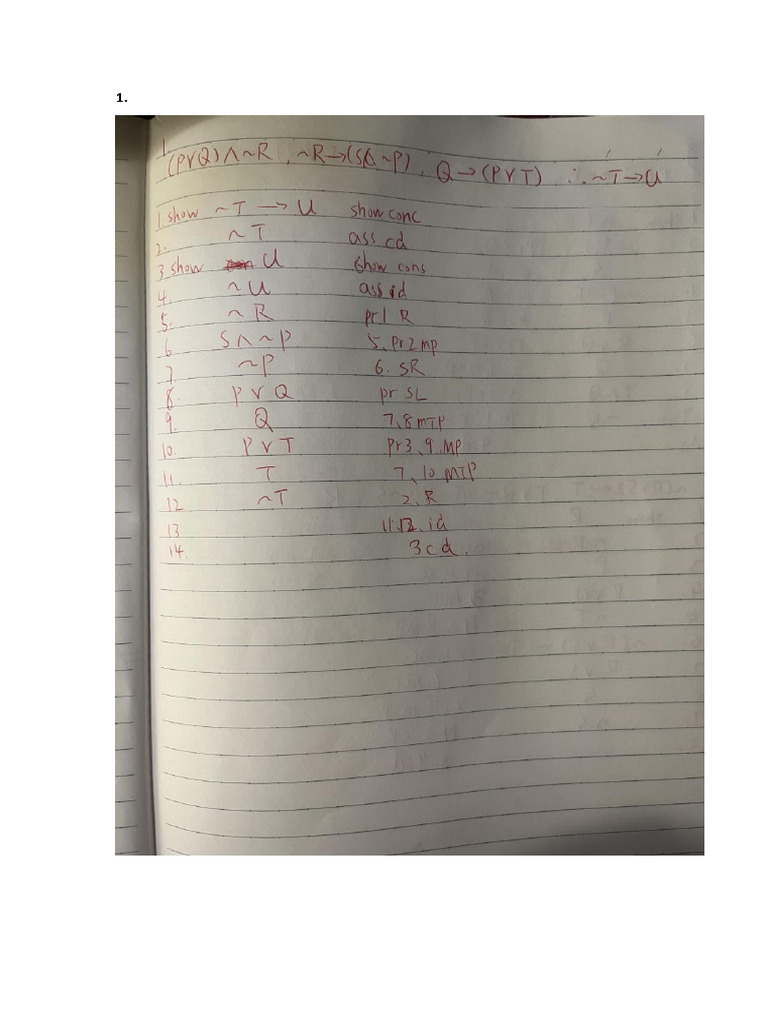 1.
1.
(P∨Q)∧~R, ~R→(S∧~P), Q→(P∨T) ∴ ~T→U
1 show ~T → U show conc
2. ~T ass cd
3 show U show cons
4. ~U ass id
5. ~R pr1 R
6 S∧~P 5, Pr2 mp
7 ~P 6. SR
8. P∨Q pr SL
9. Q 7,8 MTP
10. P∨T Pr3, 9. MP
11. T 7, 10. MTP
12 ~T 2. R
13 11.12. id
14. 3 cd.